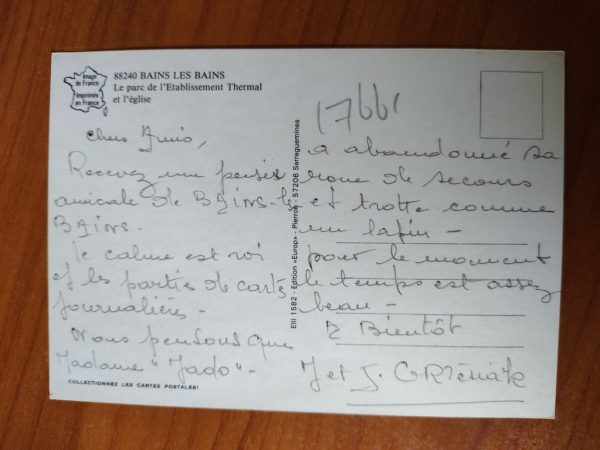 Image
de France
Imprimée
en France
88240 BAINS LES BAINS
Le parc de l'Etablissement Thermal
et l'église
Chers Amis,
Recevez une pensée
amicale de BAINS-les
BAINS.
le calme est roi
et les parties de cartes
journalières -
Nous pensons que
Madame "Jado" -
COLLECTIONNEZ LES CARTES POSTALES!
Elll 1582 - Edition «Europ» - Pierron - 57206 Sarreguemines
1766,
a abandonné sa
roue de secours
et trotte comme
un lapin -
pour le moment
le temps est assez
beau -
à Bientôt
J et J. GRZésiak